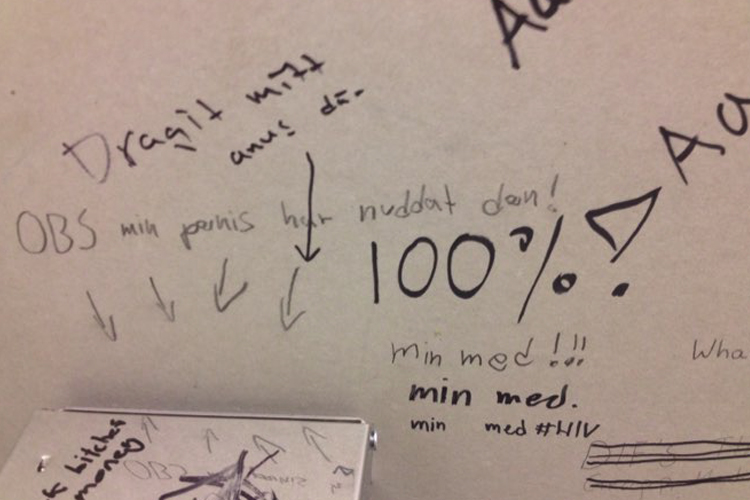 Aa
Dragit mitt
anus då
OBS min penis har nuddat den!
100%!
Aa
min med !!!
Wha
min med.
min med #HIV
bitches
money
OBS